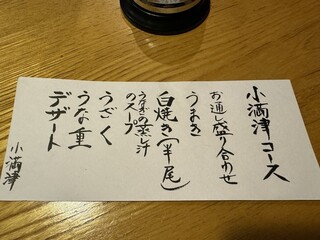 小満津コース
お通し盛り合わせ
うまき
白焼き(半尾)
うなぎの蒸し汁
のスープ
うざく
うな重
デザート
小満津